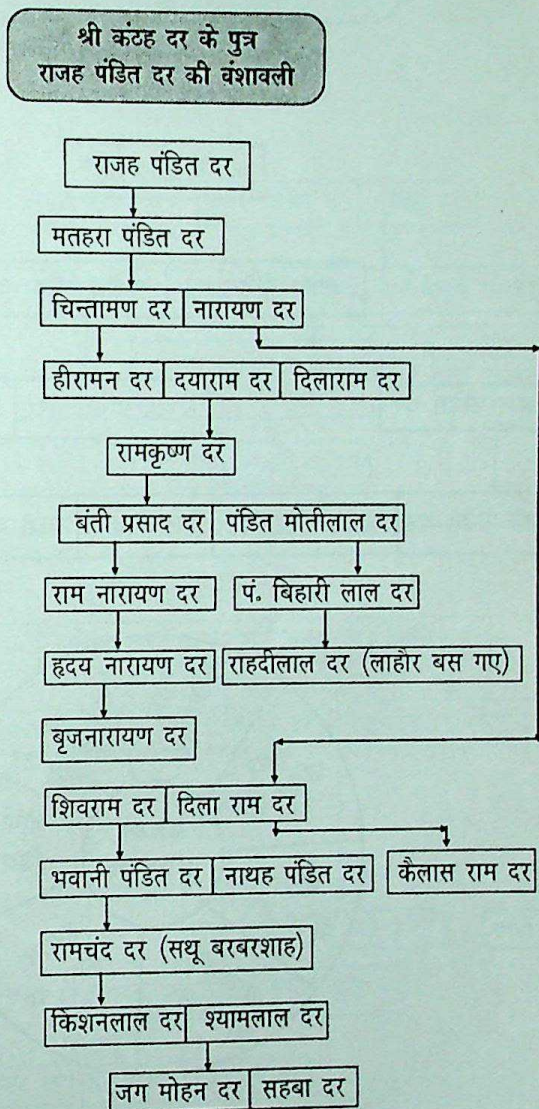 श्री कंटह दर के पुत्र
राजह पंडित दर की वंशावली
राजह पंडित दर
मतहरा पंडित दर
चिन्तामण दर नारायण दर
हीरामन दर दयाराम दर दिलाराम दर
रामकृष्ण दर
बंती प्रसाद दर पंडित मोतीलाल दर
राम नारायण दर पं. बिहारी लाल दर
हृदय नारायण दर राहदीलाल दर (लाहौर बस गए)
बृजनारायण दर
शिवराम दर दिला राम दर
भवानी पंडित दर नाथह पंडित दर कैलास राम दर
रामचंद दर (सथू बरबरशाह)
किशनलाल दर श्यामलाल दर
जग मोहन दर सहबा दर